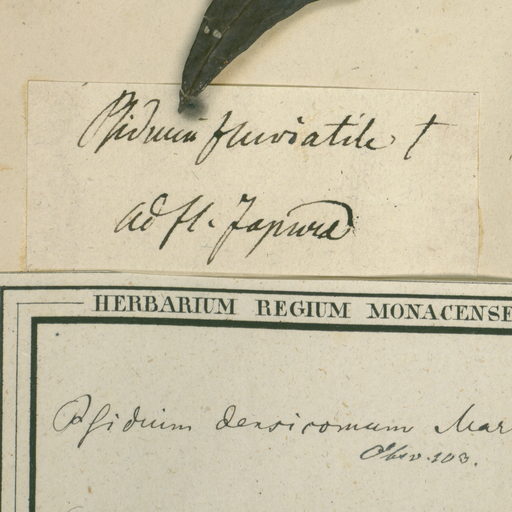 Psidium fluviatile †
ad fl. Japura
HERBARIUM REGIUM MONACENSE
Psidium densicomum Mar
Obsv. 103.